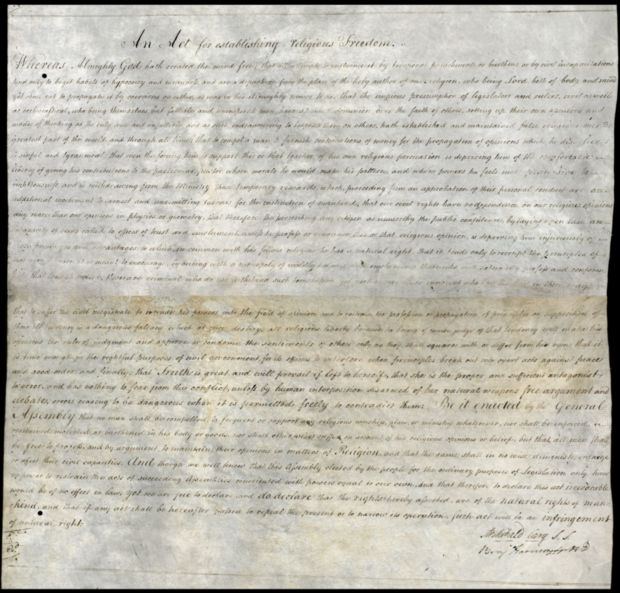 An Act for establishing religious Freedom.
Whereas, Almighty God hath created the mind free; that all attempts to influence it by temporal punishments or burthens or by civil incapacitations
tend only to beget habits of hypocrisy and meanness and are a departure from the plan of the holy author of our religion, who being Lord, both of body and mind
yet chose not to propagate it by coercions on either, as was in his Almighty power to do, that the impious presumption of legislators and rulers, civil as well
as ecclesiastical, who, being themselves but fallible and uninspired men have assumed dominion over the faith of others, setting up their own opinions and
modes of thinking as the only true and infallible, and as such endeavouring to impose them on others, hath established and maintained false religions over the
greatest part of the world and through all time; that to compel a man to furnish contributions of money for the propagation of opinions which he
is sinful and tyrannical; that even the forcing him to support this or that teacher of his own religious persuasion is depriving him of the comfortable
liberty of giving his contributions to the particular pastor whose morals he would make his pattern, and whose powers he feels most
and is withdrawing from the Ministry those temporary rewards, which, proceeding from an approbation of their personal conduct are an
additional incitement to earnest and unremitting labours for the instruction of mankind; that our civil rights have no dependence on our religious opinions
any more than our opinions in physics or geometry, that therefore the proscribing any citizen as unworthy the public confidence, by laying upon him an
incapacity of being called to offices of trust and emolument, unless he profess or renounce this or that religious opinion, is depriving him injuriously of
those privileges and advantages, to which, in common with his fellow citizens, he has a natural right, that it tends only to corrupt the principles of
that very religion it is meant to encourage, by bribing with a monopoly of worldly honours and emoluments those who will externally profess and conform
to it; that though indeed, these are criminal who do not withstand such temptation yet neither are those innocent who lay the bait in their way;
that to suffer the civil magistrate to intrude his powers into the field of opinion and to restrain the profession or propagation of principles on supposition of
their ill tendency is a dangerous fallacy which at once destroys all religious liberty because he being of course judge of that tendency will make his
opinions the rule of judgment and approve or condemn the sentiments of others only as they shall square with or differ from his own; that it
is time enough for the rightful purposes of civil government, for its officers to interfere when principles break out into overt acts against peace
and good order; and finally, that Truth is great and will prevail if left to herself, that she is the proper and sufficient antagonist
to error, and has nothing to fear from the conflict, unless by human interposition disarmed of her natural weapons free argument and
debate, errors ceasing to be dangerous when it is permitted freely to contradict them: Be it enacted by the General
Assembly that no man shall be compelled to frequent or support any religious worship, place, or ministry whatsoever, nor shall be enforced,
restrained, molested, or burthened in his body or goods, nor shall otherwise suffer on account of his religious opinions or belief, but that all men shall
be free to profess, and by argument to maintain, their opinions in matters of Religion, and that the same shall in no wise diminish, enlarge
or affect their civil capacities. And though we well know that this Assembly elected by the people for the ordinary purposes of Legislation only, have
no power to restrain the acts of succeeding Assemblies constituted with powers equal to our own, and that therefore to declare this act irrevocable
would be of no effect in law, yet we are free to declare, and do declare that the rights hereby asserted, are of the natural rights of man-
kind, and that if any act shall be hereafter passed to repeal the present or to narrow its operation, such act will be an infringement
of natural right.
Archibald Cary S. S.
Benj Harrison